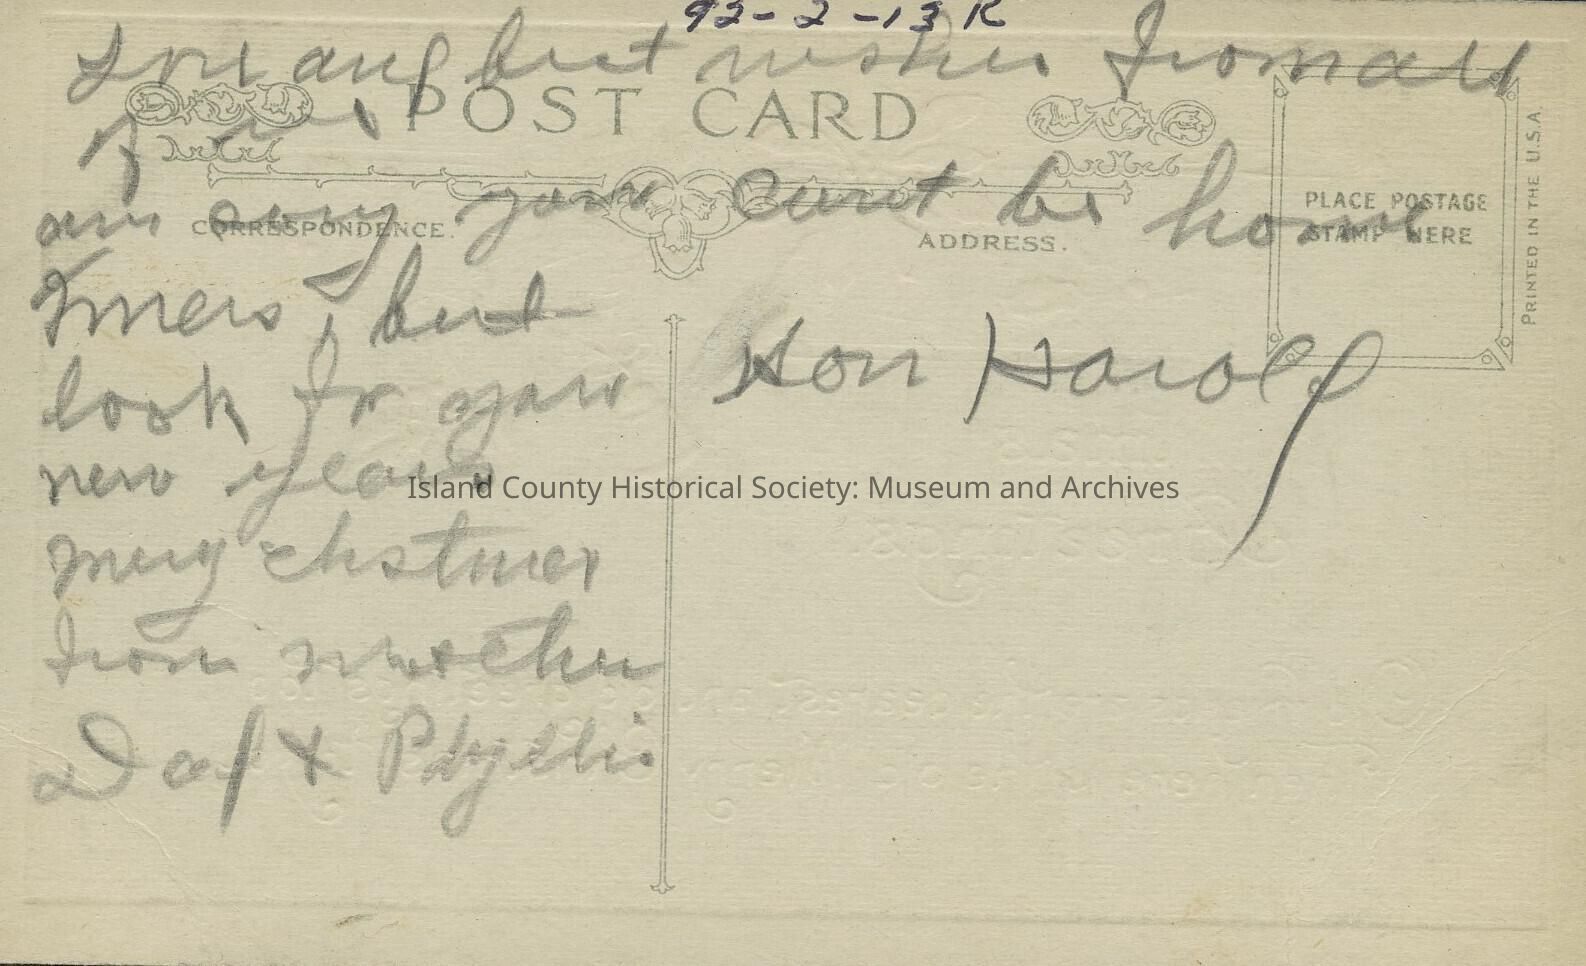 92-2-13 R
Love and best wishes from all
of us
POST CARD
am sorry you cant be home
CORRESPONDENCE.
ADDRESS.
PLACE POSTAGE
STAMP HERE
PRINTED IN THE U.S.A.
Xmers, but
look for you
new years
Son Harold
Island County Historical Society: Museum and Archives
mery chstmer
from mother
Dad & Phyllis